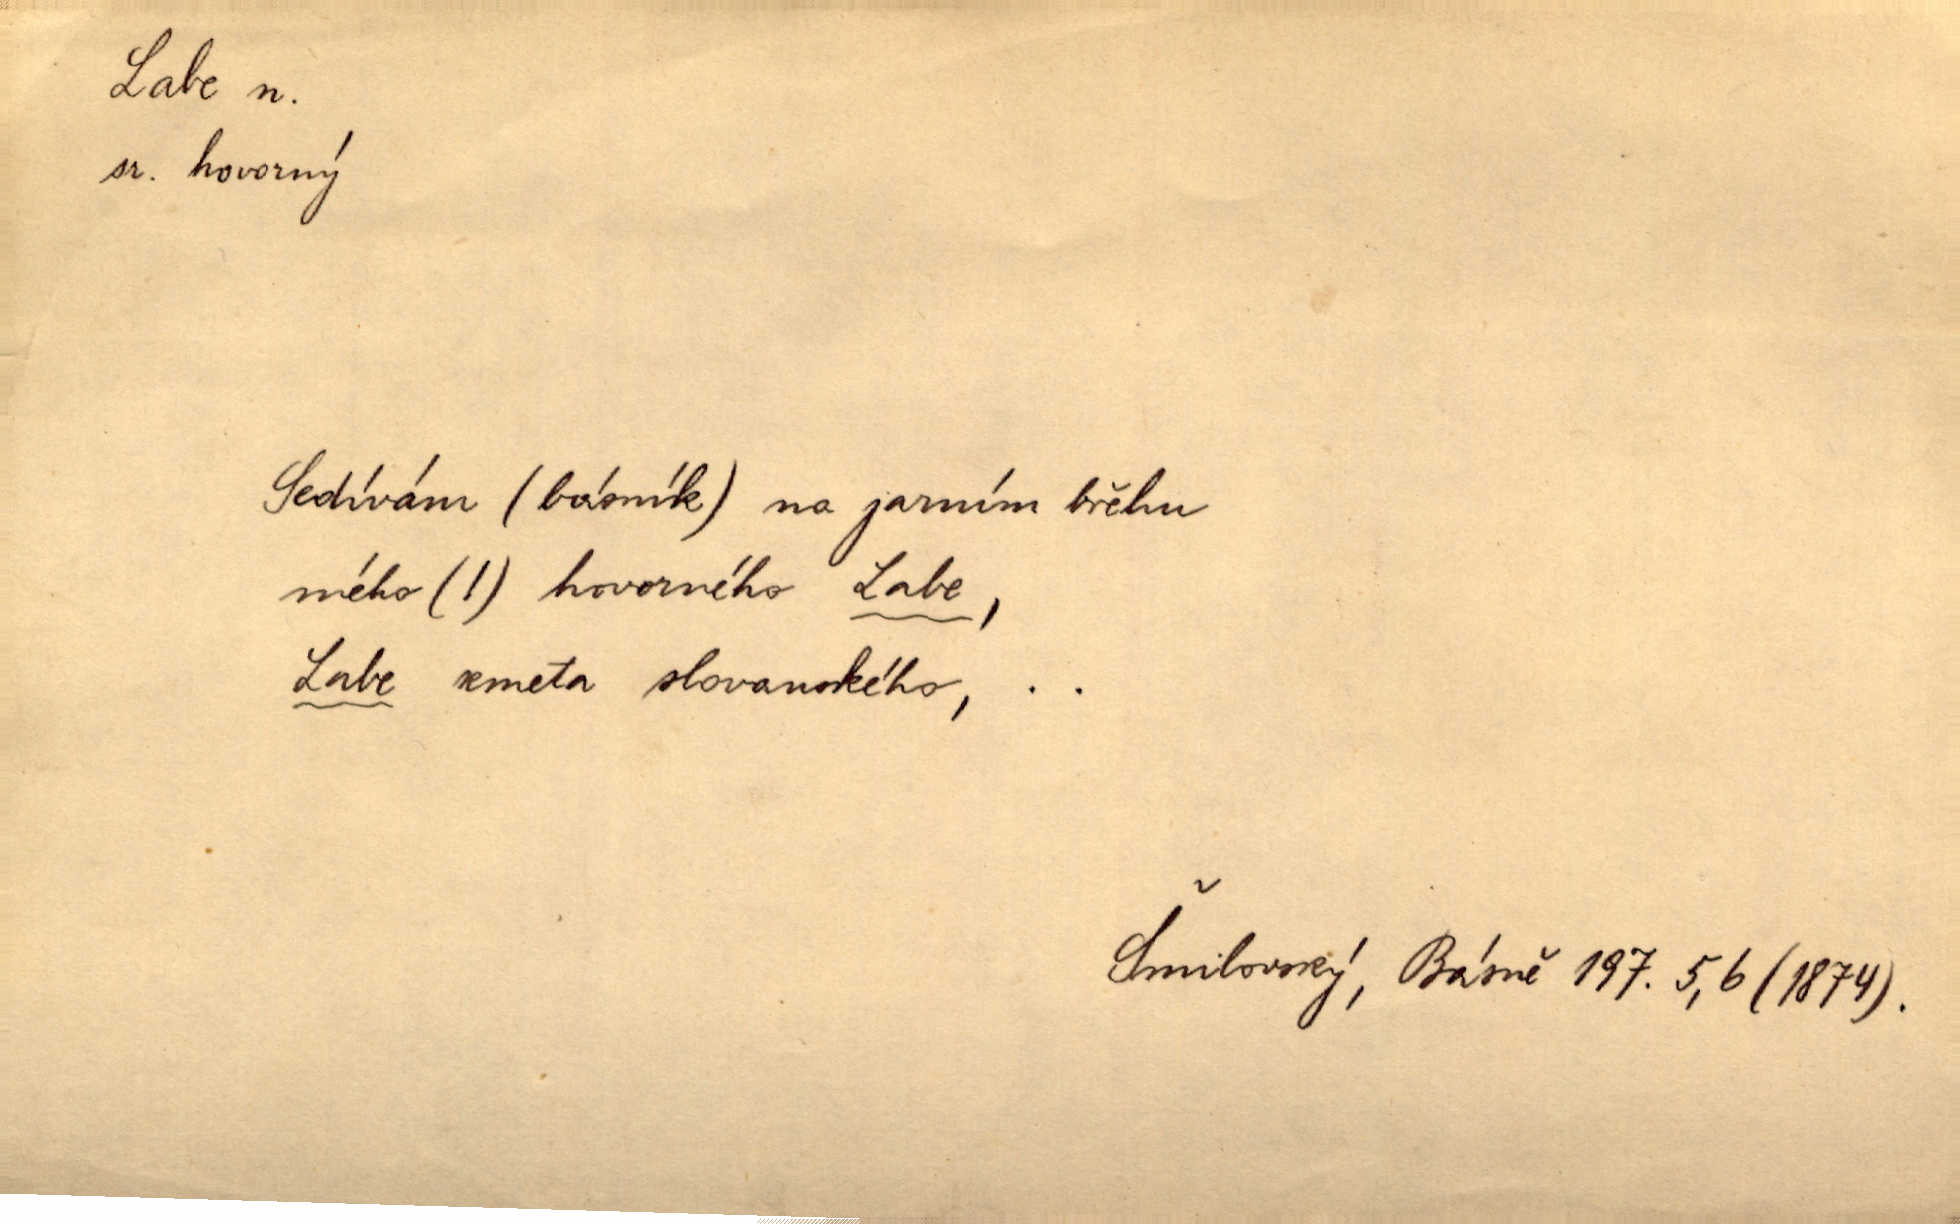 Labe n.
sr. hovorný
Sedívám (básník) na jarním břehu
mého (!) hovorného Labe,
Labe kmeta slovanského, . .
Šmilovský, Básně 197. 5,6 (1874).